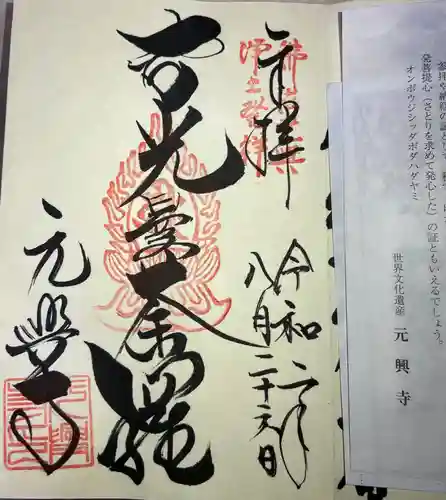 発菩提心（さとりを求めて発心した）の証ともいえるでしょう。
オンボウジシッダボダハダヤミ
世界文化遺産 元興寺
奉拝
令和二年
八月二十六日
智光曼荼羅
元興寺